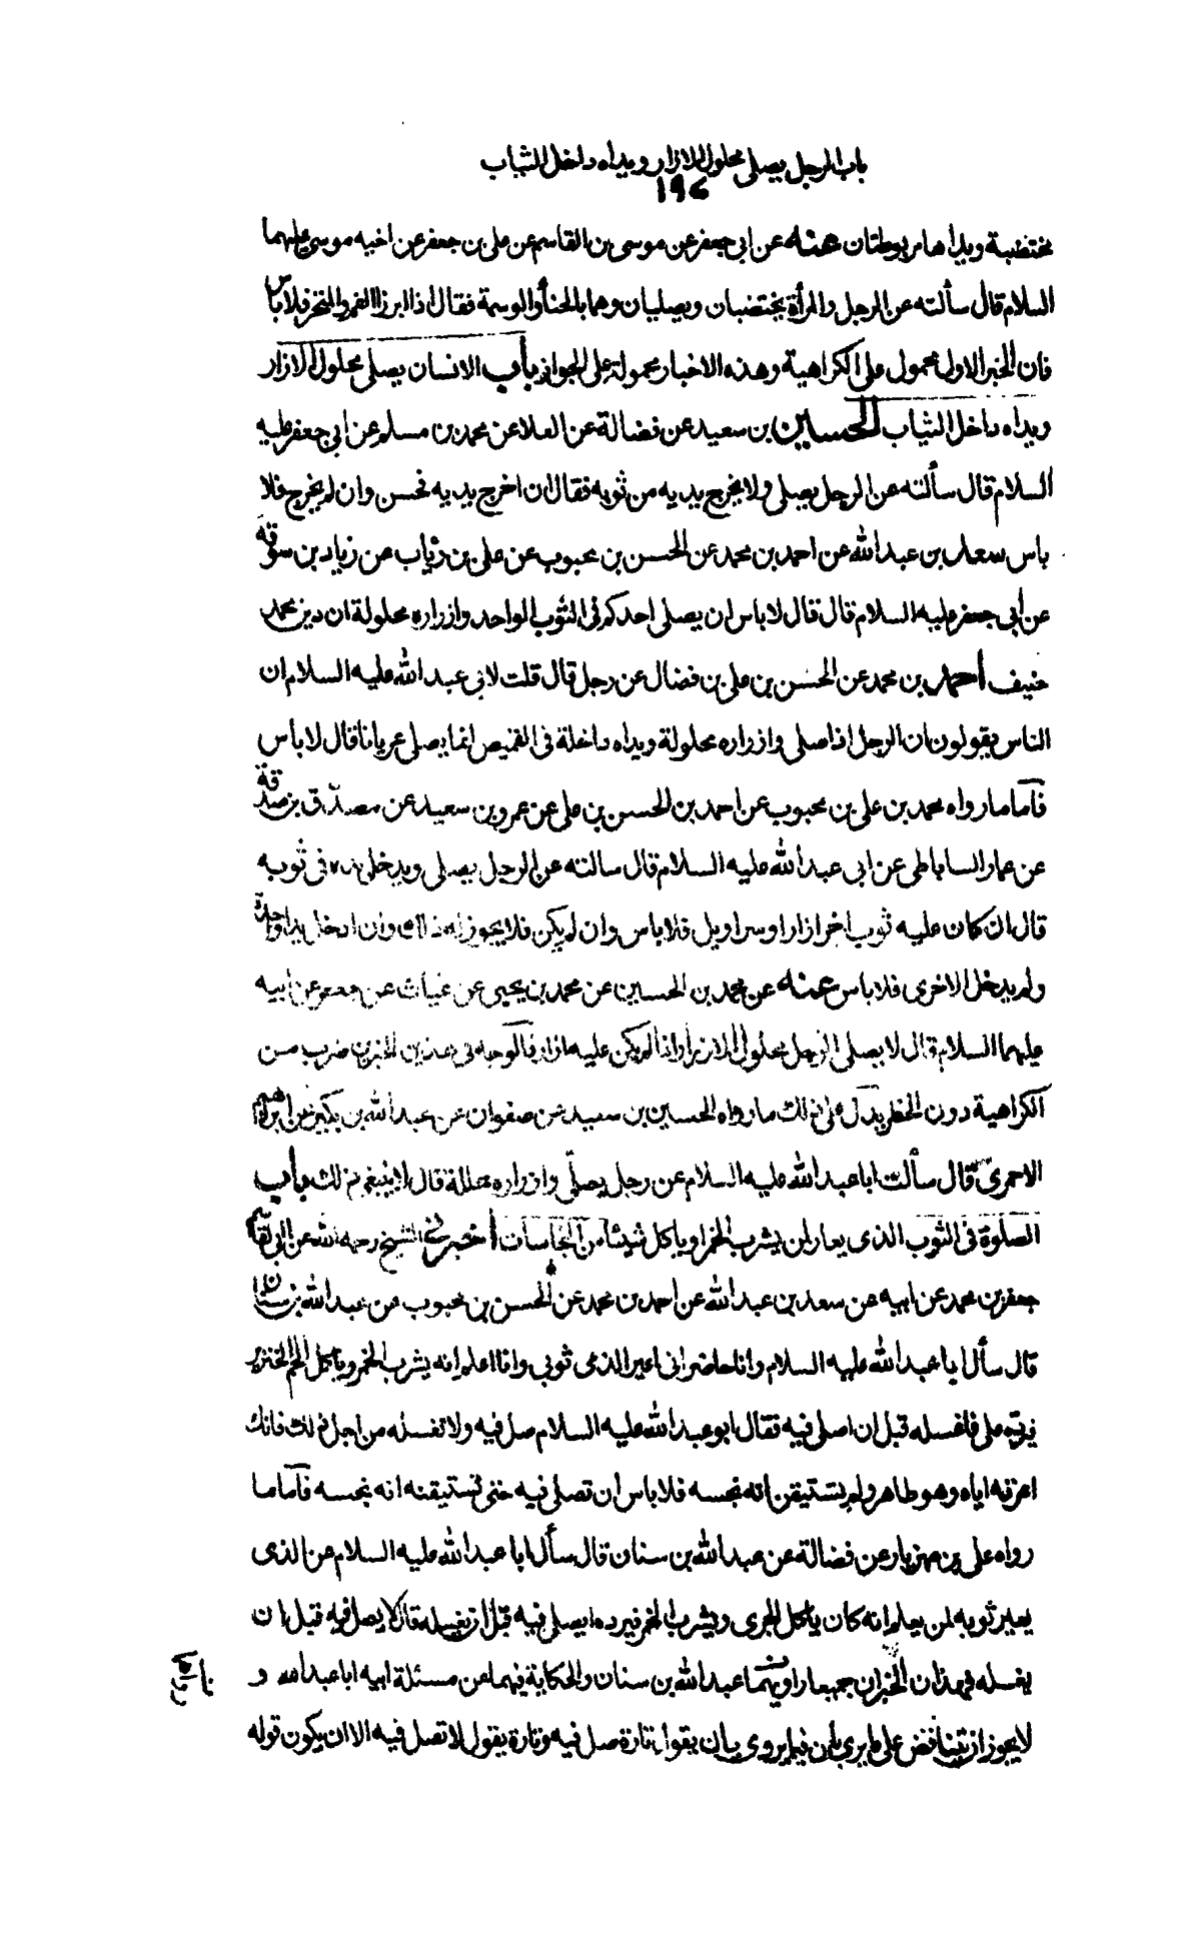 باب الرجل يصلى محلول الازار ويداه داخل الثياب
١٩٤
مختضبة ويداها مربوطتان عنه عن ابى جعفر عن موسى بن القاسم عن على بن جعفر عن اخيه موسى عليهما
السلام قال سألته عن الرجل والمرأة يختضبان ويصليان وهما بالحنأ والوسمة فقال اذا ابرزا الفم والمنخر فلا باس
فان الخبر الاول محمول على الكراهية وهذه الاخبار محمولة على الجواز باب الانسان يصلى محلول الازار
ويداه داخل الثياب الحسين بن سعيد عن فضالة عن العلا عن محمد بن مسلم عن ابى جعفر عليه
السلام قال سألته عن الرجل يصلى ولا يخرج يديه من ثوبه فقال ان اخرج يديه فحسن وان لم يخرج فلا
باس سعد بن عبد الله عن احمد بن محمد عن الحسن بن محبوب عن على بن رئاب عن زياد بن سوقه
عن أبى جعفر عليه السلام قال قال لا باس ان يصلى احدكم فى الثوب الواحد وازراره محلولة ان دين محمد
حنيف أحمد بن محمد عن الحسن بن على بن فضال عن رجل قال قلت لابى عبد الله عليه السلام ان
الناس يقولون ان الرجل اذا صلى وازراره محلولة ويداه داخلة فى القميص انما يصلى عريانا قال لا بأس
فأما ما رواه محمد بن على بن محبوب عن احمد بن الحسن بن على عن عمرو بن سعيد عن مصدق بن صدقة
عن عمار الساباطى عن ابى عبد الله عليه السلام قال سالته عن الرجل يصلى ويدخل يده فى ثوبه
قال ان كان عليه ثوب اخر ازار او سراويل فلا باس وان لم يكن فلا يجوز له ذلك وان ادخل يدا واحدة
ولم يدخل الاخرى فلا باس عنه عن محمد بن الحسين عن محمد بن يحيى عن غياث عن جعفر عن ابيه
عليهما السلام قال لا يصلى الرجل محلول الازرار اذا لم يكن عليه ازار فالوجه فى هذين الخبرين ضرب من
الكراهية دون الحظر يدل على ذلك ما رواه الحسين بن سعيد عن صفوان عن عبد الله بن بكير عن ابراهيم
الاحمرى قال سألت ابا عبد الله عليه السلام عن رجل يصلى وازراره محللة قال لا ينبغى ذلك باب
الصلوة فى الثوب الذى يعار لمن يشرب الخمر او ياكل شيئا من النجاسات أخبرنى الشيخ رحمه الله عن ابى القاسم
جعفر بن محمد عن ابيه عن سعد بن عبد الله عن احمد بن محمد عن الحسن بن محبوب عن عبد الله بن سنان
قال سأل ابا عبد الله عليه السلام وانا حاضر انى اعير الذمى ثوبى وانا اعلم انه يشرب الخمر وياكل لحم الخنزير
فيرده على فاغسله قبل ان اصلى فيه فقال ابو عبد الله عليه السلام صل فيه ولا تغسله من اجل ذلك فانك
اعرته اياه وهو طاهر ولم تستيقن انه نجسه فلا باس ان تصلى فيه حتى تستيقنه انه نجسه فأما ما
رواه على بن مهزيار عن فضالة عن عبد الله بن سنان قال سأل ابا عبد الله عليه السلام عن الذى
يعير ثوبه لمن يعلم انه كان ياكل الجرى ويشرب الخمر فيرده ايصلى فيه قبل ان يغسله قال لا يصل فيه قبل ان
يغسله فهذان الخبران جميعا راويهما عبد الله بن سنان والحكاية فيهما عن مسئلة ابيه ابا عبد الله و
لا يجوز ان يتناقض على ما يرى بان فيما يروى بان يقول تارة صل فيه وتارة يقول لا تصل فيه الا ان يكون قوله